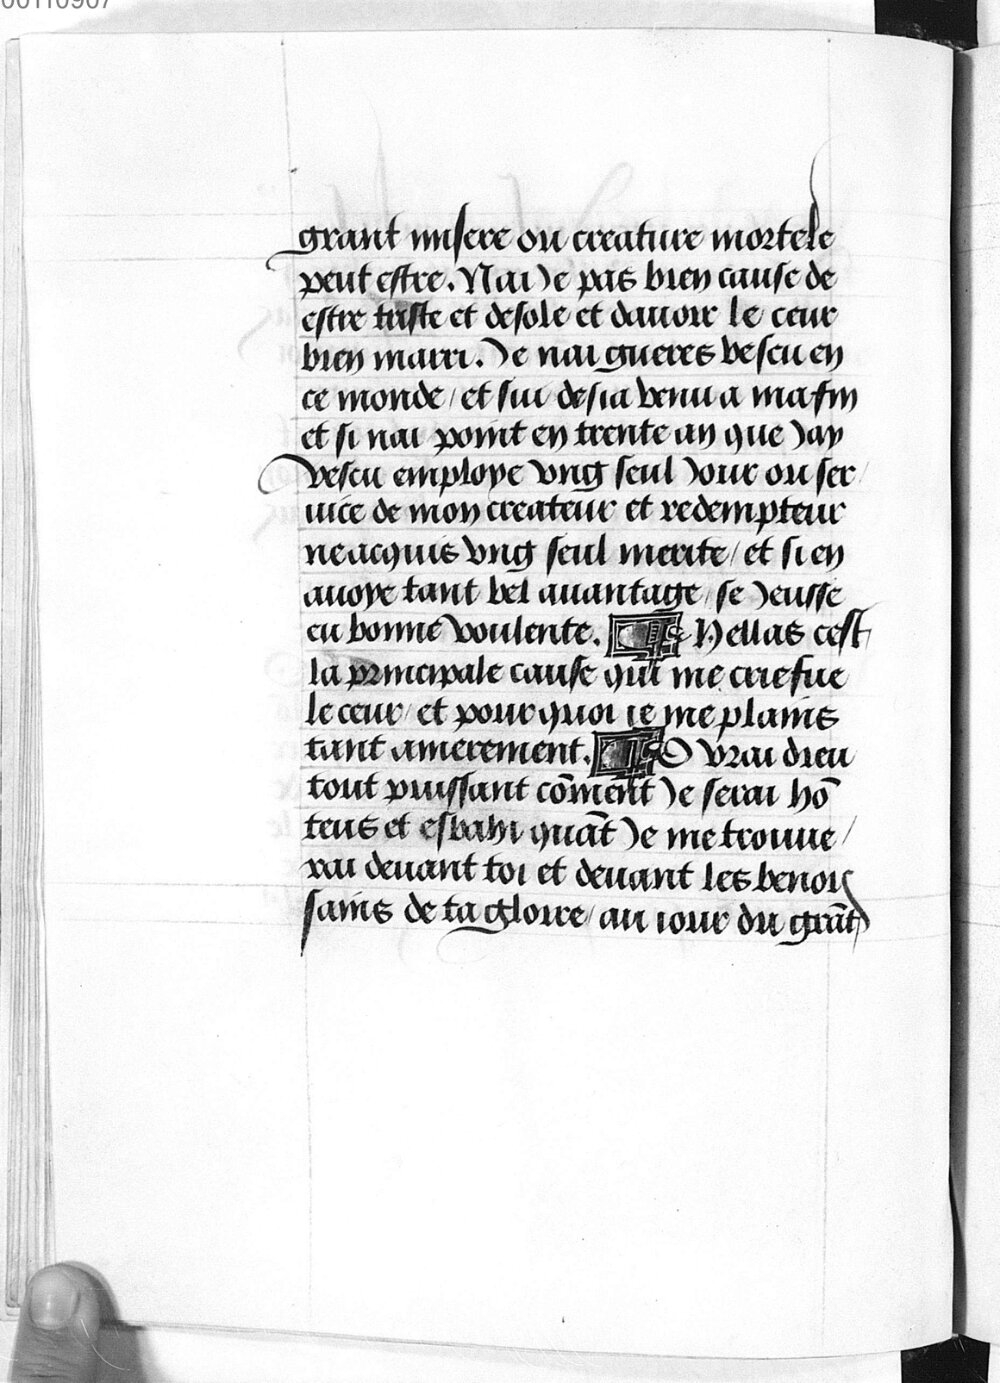 00110907
grant misere ou creature mortele
peut estre. Nai Je pas bien cause de
estre triste et desole et dauoir le ceur
bien marri. Je nai gueres vescu en
ce monde / et sui desia venu a ma fin
et si nai point en trente an que Jay
vescu employe vng seul Jour ou ser/
uice de mon createur et redempteur
ne acquis vng seul merite / et si en
auoye tant bel auantage / se Jeusse
eu bonne voulente. ¶ Hellas cest
la principale cause qui me criefue
le ceur / et pour quoi ie me plains
tant amerement. ¶ O vrai dieu
tout puissant cõment Je serai hõ
teus et esbahi quãt Je me trouue/
rai deuant toi et deuant les benois
sains de ta gloire / au iour du grãt